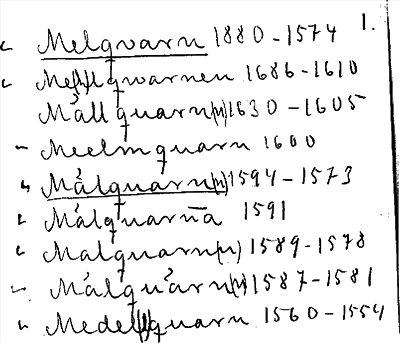 1.
Melqvarn 1880-1574
Me(l)lqwarnen 1686-1610
Måll quarn(n) 1630-1605
Meelmquarn 1600
Målquarn(n) 1594-1573
Målquarna 1591
Malquarn(n) 1589-1578
Målquarn(n) 1587-1581
Medelquarn 1560-1554